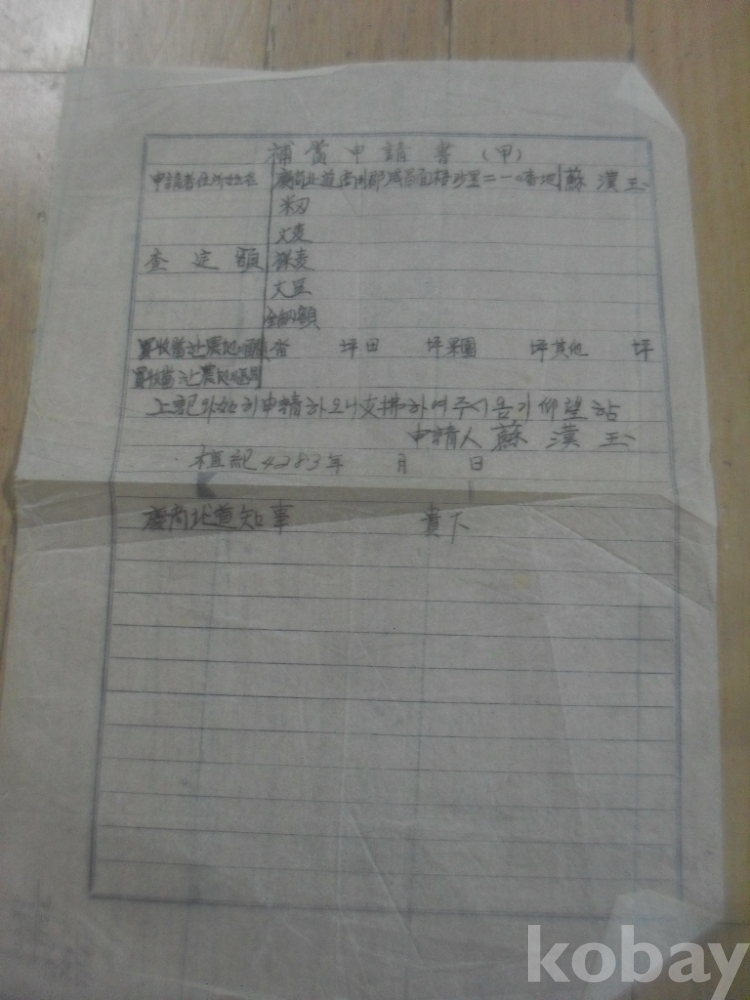 補償申請書(甲)
申請者住所姓名 慶尚北道 郡 面梧沙里二一 番地 蘇漢玉
籾
大麦
査定額 裸麦
大豆
金納額
買收當한農地面積 畓 坪 田 坪 果園 坪 其他 坪
買收當한農地
上記와如히申請하오니支拂하여주시옵기仰望함
申請人 蘇漢玉
檀紀4283年 月 日
慶尚北道知事 貴下
kobay